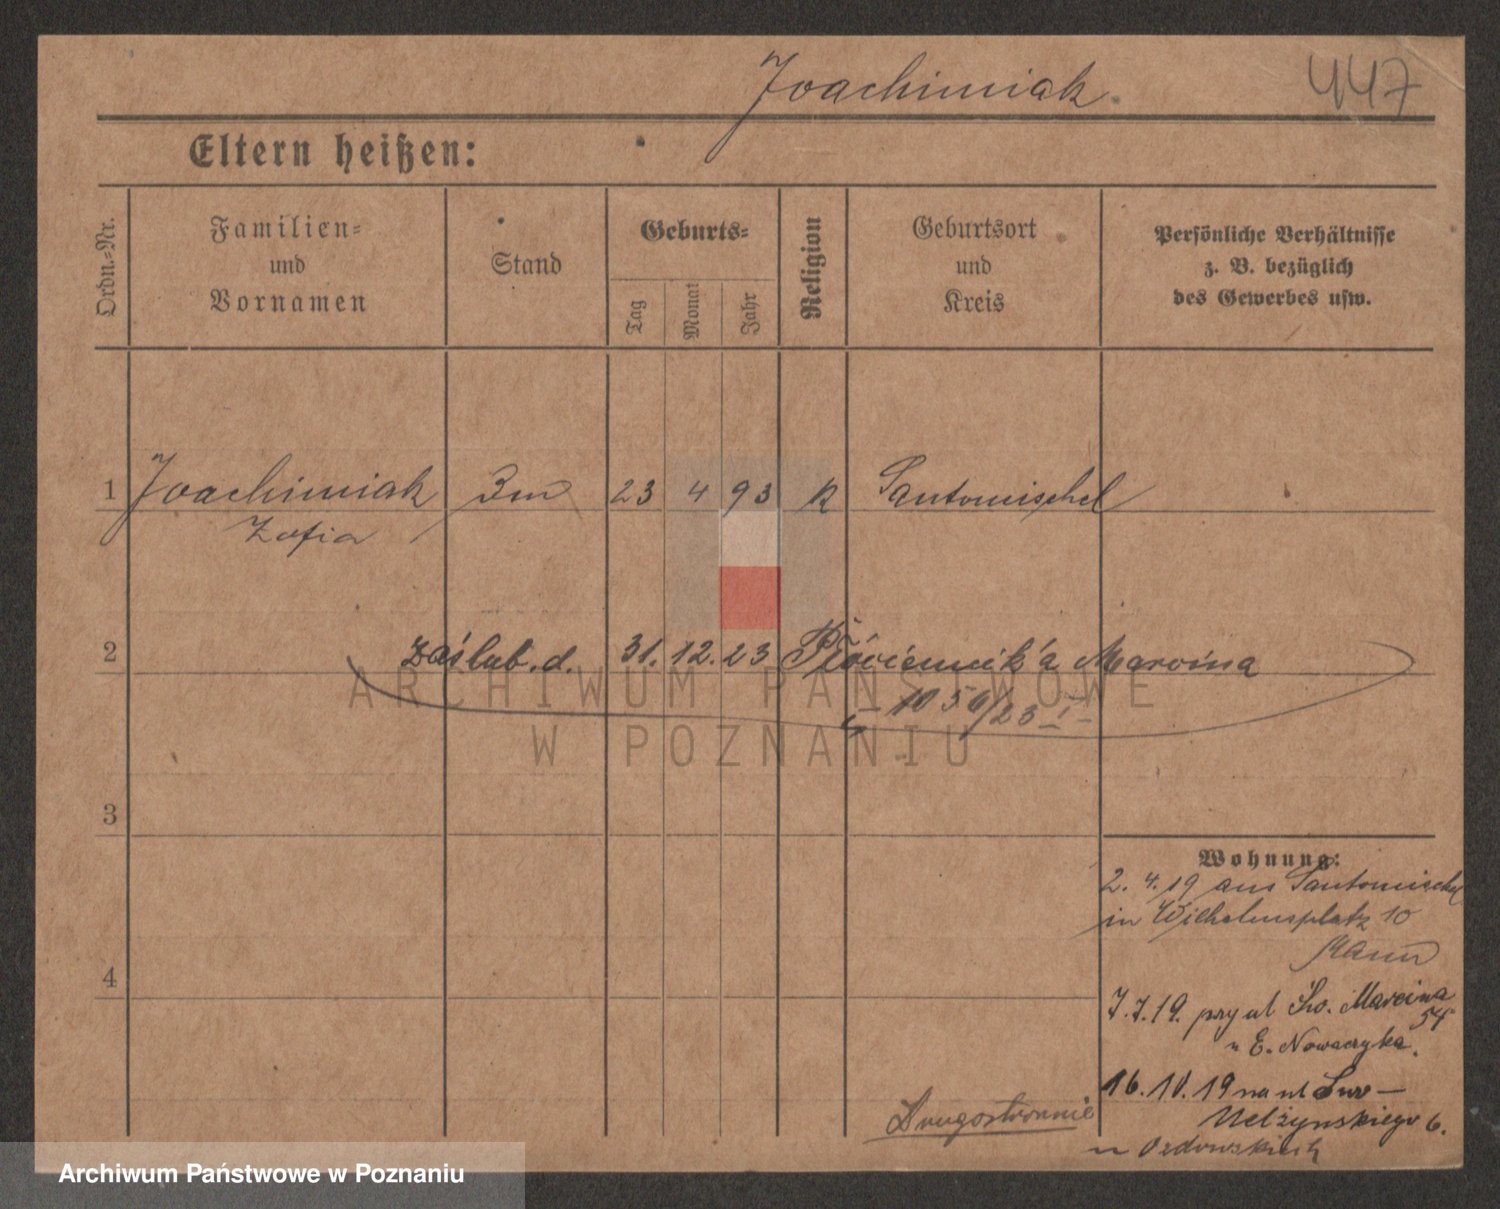 Joachimiak
447
Eltern heißen:
Ordn.-Nr.
Familien-
und
Vornamen
Stand
Geburts-
Tag
Monat
Jahr
Religion
Geburtsort
und
Kreis
Persönliche Verhältnisse
z. B. bezüglich
des Gewerbes usw.
1 Joachimiak 23 4 93 K Santomischel
Zofia
2 Zaślub. d. 31. 12. 23 Marcina
ARCHIWUM PAŃSTWOWE
W POZNANIU
3
4
Wohnung:
2. 4. 19 aus Santomischel
in Wilhelmsplatz 10
7.7.19. przy ul Św. Marcina
54
u E. Nowaczyka.
16.10.19 na ul
6.
Drugostronnie
Archiwum Państwowe w Poznaniu